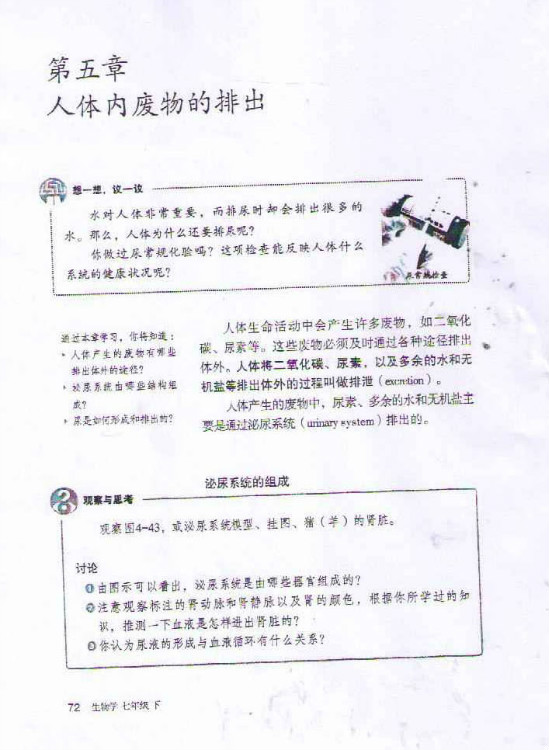 第五章
人体内废物的排出
想一想，议一议
水对人体非常重要，而排尿时却会排出很多的
水。那么，人体为什么还要排尿呢？
你做过尿常规化验吗？这项检查能反映人体什么
系统的健康状况呢？
尿常规检查
通过本章学习，你将知道：
人体产生的废物有哪些
排出体外的途径？
泌尿系统由哪些结构组
成？
尿是如何形成和排出的？
人体生命活动中会产生许多废物，如二氧化
碳、尿素等。这些废物必须及时通过各种途径排出
体外。人体将二氧化碳、尿素，以及多余的水和无
机盐等排出体外的过程叫做排泄（excretion）。
人体产生的废物中，尿素、多余的水和无机盐主
要是通过泌尿系统（urinary system）排出的。
泌尿系统的组成
观察与思考
观察图4-43，或泌尿系统模型、挂图、猪（羊）的肾脏。
讨论
❶由图示可以看出，泌尿系统是由哪些器官组成的？
❷注意观察标注的肾动脉和肾静脉以及肾的颜色，根据你所学过的知
识，推测一下血液是怎样进出肾脏的？
❸你认为尿液的形成与血液循环有什么关系？
72 生物学 七年级 下